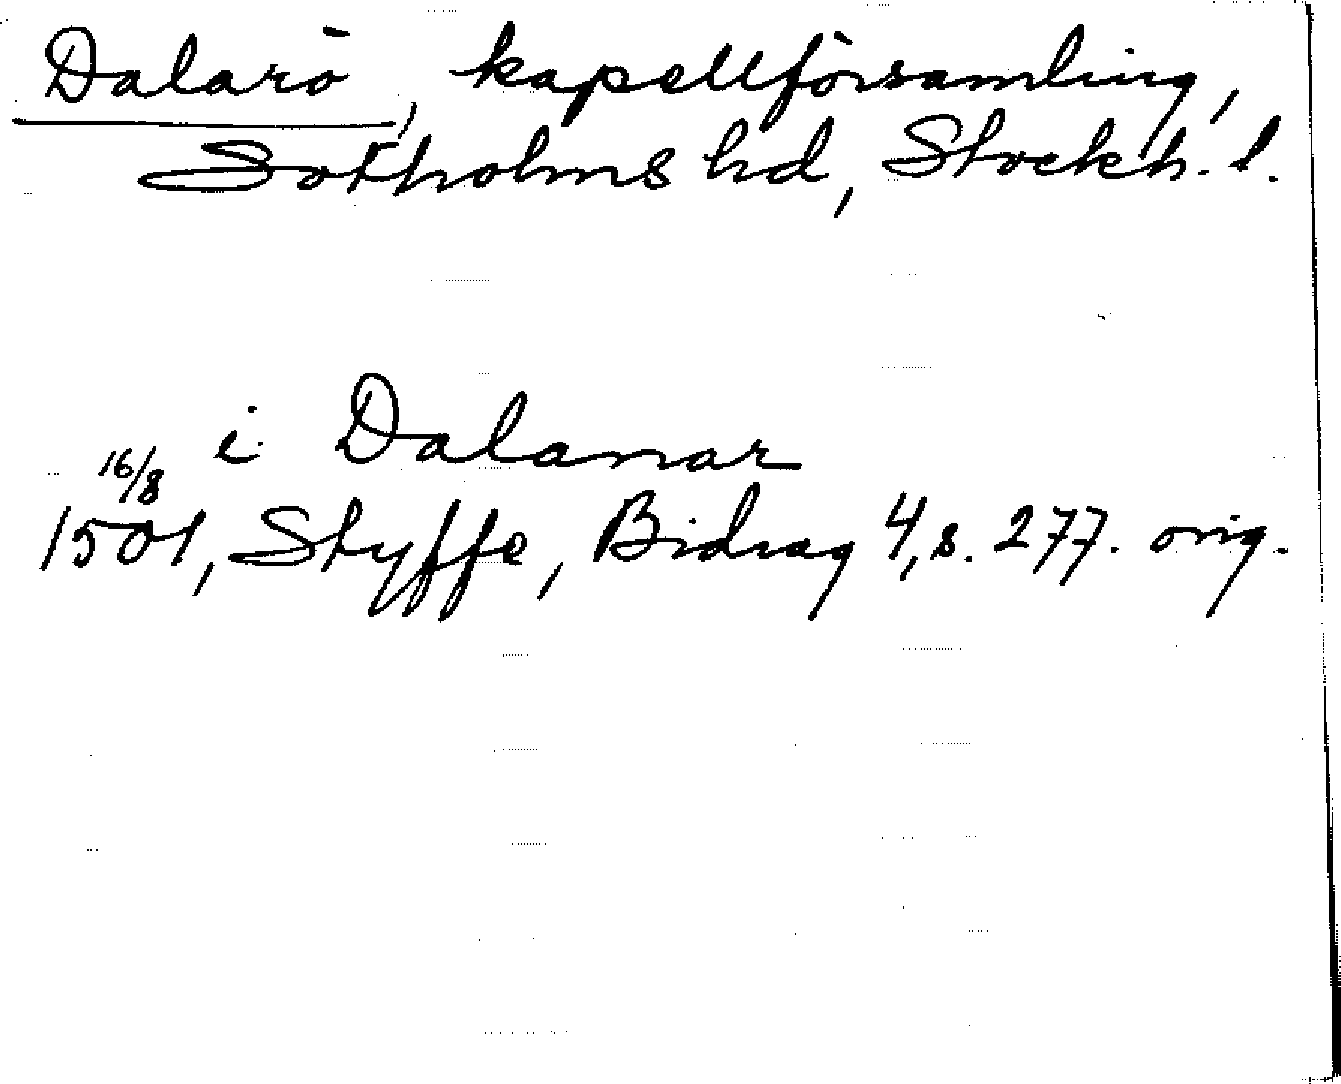 Dalarö, kapellförsamling,
Sotholms hd, Stockh. l.
i Dalanar
16/8
1501, Styffe, Bidrag 4, s. 277. orig.